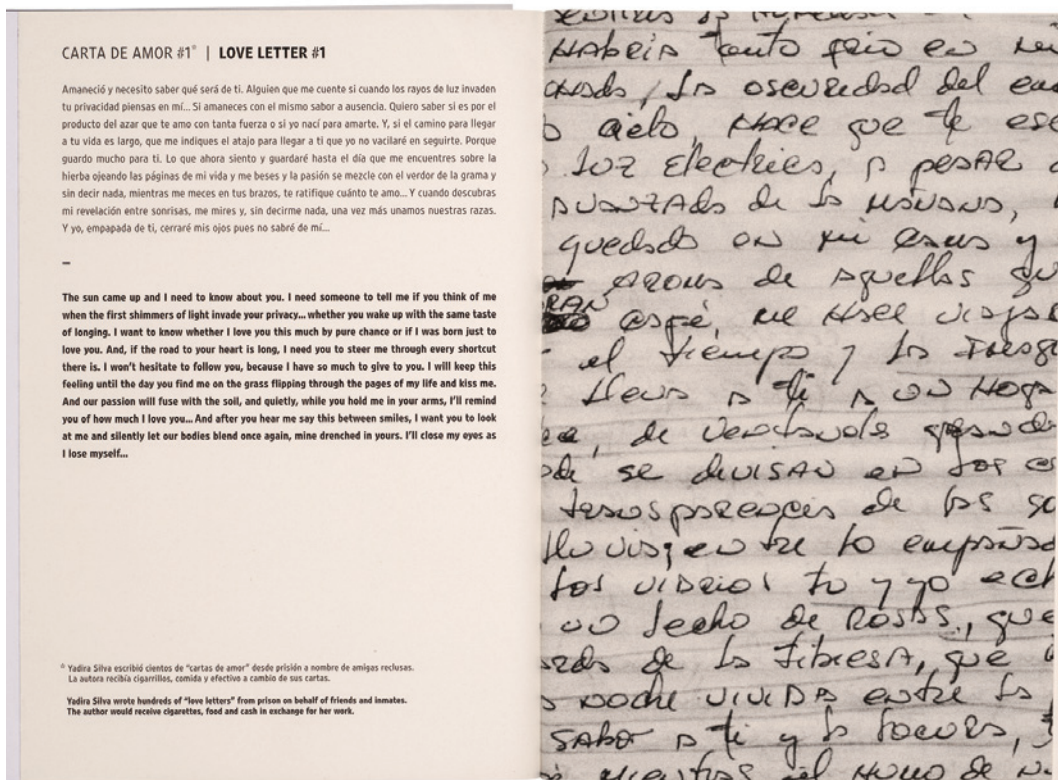 CARTA DE AMOR #1* | LOVE LETTER #1
Amaneció y necesito saber qué será de ti. Alguien que me cuente si cuando los rayos de luz invaden
tu privacidad piensas en mí... Si amaneces con el mismo sabor a ausencia. Quiero saber si es por el
producto del azar que te amo con tanta fuerza o si yo nací para amarte. Y, si el camino para llegar
a tu vida es largo, que me indiques el atajo para llegar a ti que yo no vacilaré en seguirte. Porque
guardo mucho para ti. Lo que ahora siento y guardaré hasta el día que me encuentres sobre la
hierba ojeando las páginas de mi vida y me beses y la pasión se mezcle con el verdor de la grama y
sin decir nada, mientras me meces en tus brazos, te ratifique cuánto te amo... Y cuando descubras
mi revelación entre sonrisas, me mires y, sin decirme nada, una vez más unamos nuestras razas.
Y yo, empapada de ti, cerraré mis ojos pues no sabré de mí...
–
The sun came up and I need to know about you. I need someone to tell me if you think of me
when the first shimmers of light invade your privacy... whether you wake up with the same taste
of longing. I want to know whether I love you this much by pure chance or if I was born just to
love you. And, if the road to your heart is long, I need you to steer me through every shortcut
there is. I won't hesitate to follow you, because I have so much to give to you. I will keep this
feeling until the day you find me on the grass flipping through the pages of my life and kiss me.
And our passion will fuse with the soil, and quietly, while you hold me in your arms, I'll remind
you of how much I love you... And after you hear me say this between smiles, I want you to look
at me and silently let our bodies blend once again, mine drenched in yours. I'll close my eyes as
I lose myself...
* Yadira Silva escribió cientos de "cartas de amor" desde prisión a nombre de amigas reclusas.
La autora recibía cigarrillos, comida y efectivo a cambio de sus cartas.
Yadira Silva wrote hundreds of "love letters" from prison on behalf of friends and inmates.
The author would receive cigarettes, food and cash in exchange for her work.
tanto frio en
la oscuridad del
cielo, Hace que te
luz electrica, a pesar
avanzada de la mañana,
quedado en mi casa y
aroma de aquellas
café, me hace
el tiempo y la
lleva a ti a un
de
se divisan en los
transparencia de las
lluvia; entre lo
los vidrios tu y yo
un lecho de rosas, que
de la tibiesa, que
noche vivida entre la
sabor a ti y la locura,
mientras el humo de